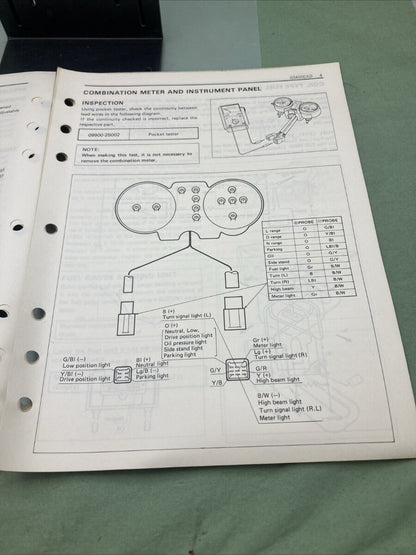 COMBINATION METER AND INSTRUMENT PANEL
INSPECTION
Using pocket tester, check the continuity between
lead wires in the following diagram.
If the continuity checked is incorrect, replace the
respective part.
09900-25002 Pocket tester
NOTE:
When making this test, it is not necessary to
remove the combination meter.
⊕PROBE ⊖PROBE
L range O G/Bl
D range O Y/Bl
N range O Bl
Parking O
Oil O G/Y
Side stand O G/Y
Fuel light Gr B/W
Turn (L) B B/W
Turn (R) B/W
High beam Y B/W
Meter light Gr B/W
B (+)
Turn signal light (L)
O (+)
Neutral, Low,
Drive position light
Oil pressure light
Side stand light
Parking light
Gr (+)
Meter light
Lg (+)
Turn signal light (R)
G/Bl (−)
Low position light
Y/Bl (−)
Drive position light
Bl (+)
Neutral light
Lg/B (−)
Parking light
G/Y
Y/B
G/R
Y (+)
High beam light
B/W (−)
High beam light
Turn signal light (R,L)
Meter light